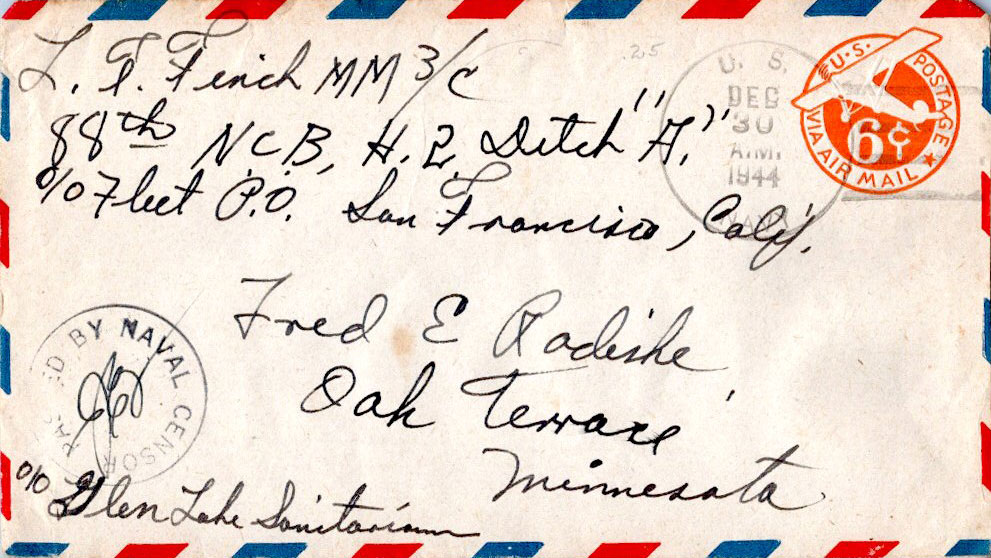 L. F. Finch MM 3/c
88th N C B, H. 2 Detch "A."
c/o Fleet P.O. San Francisco, Calif.
25
U. S.
DEC
30
A.M.
1944
NAVY
U.S. POSTAGE
6¢
VIA AIR MAIL
Fred E Radishe
Oak Terrace,
Minnesota
PASSED BY NAVAL CENSOR
c/o Glen Lake Sanitarium